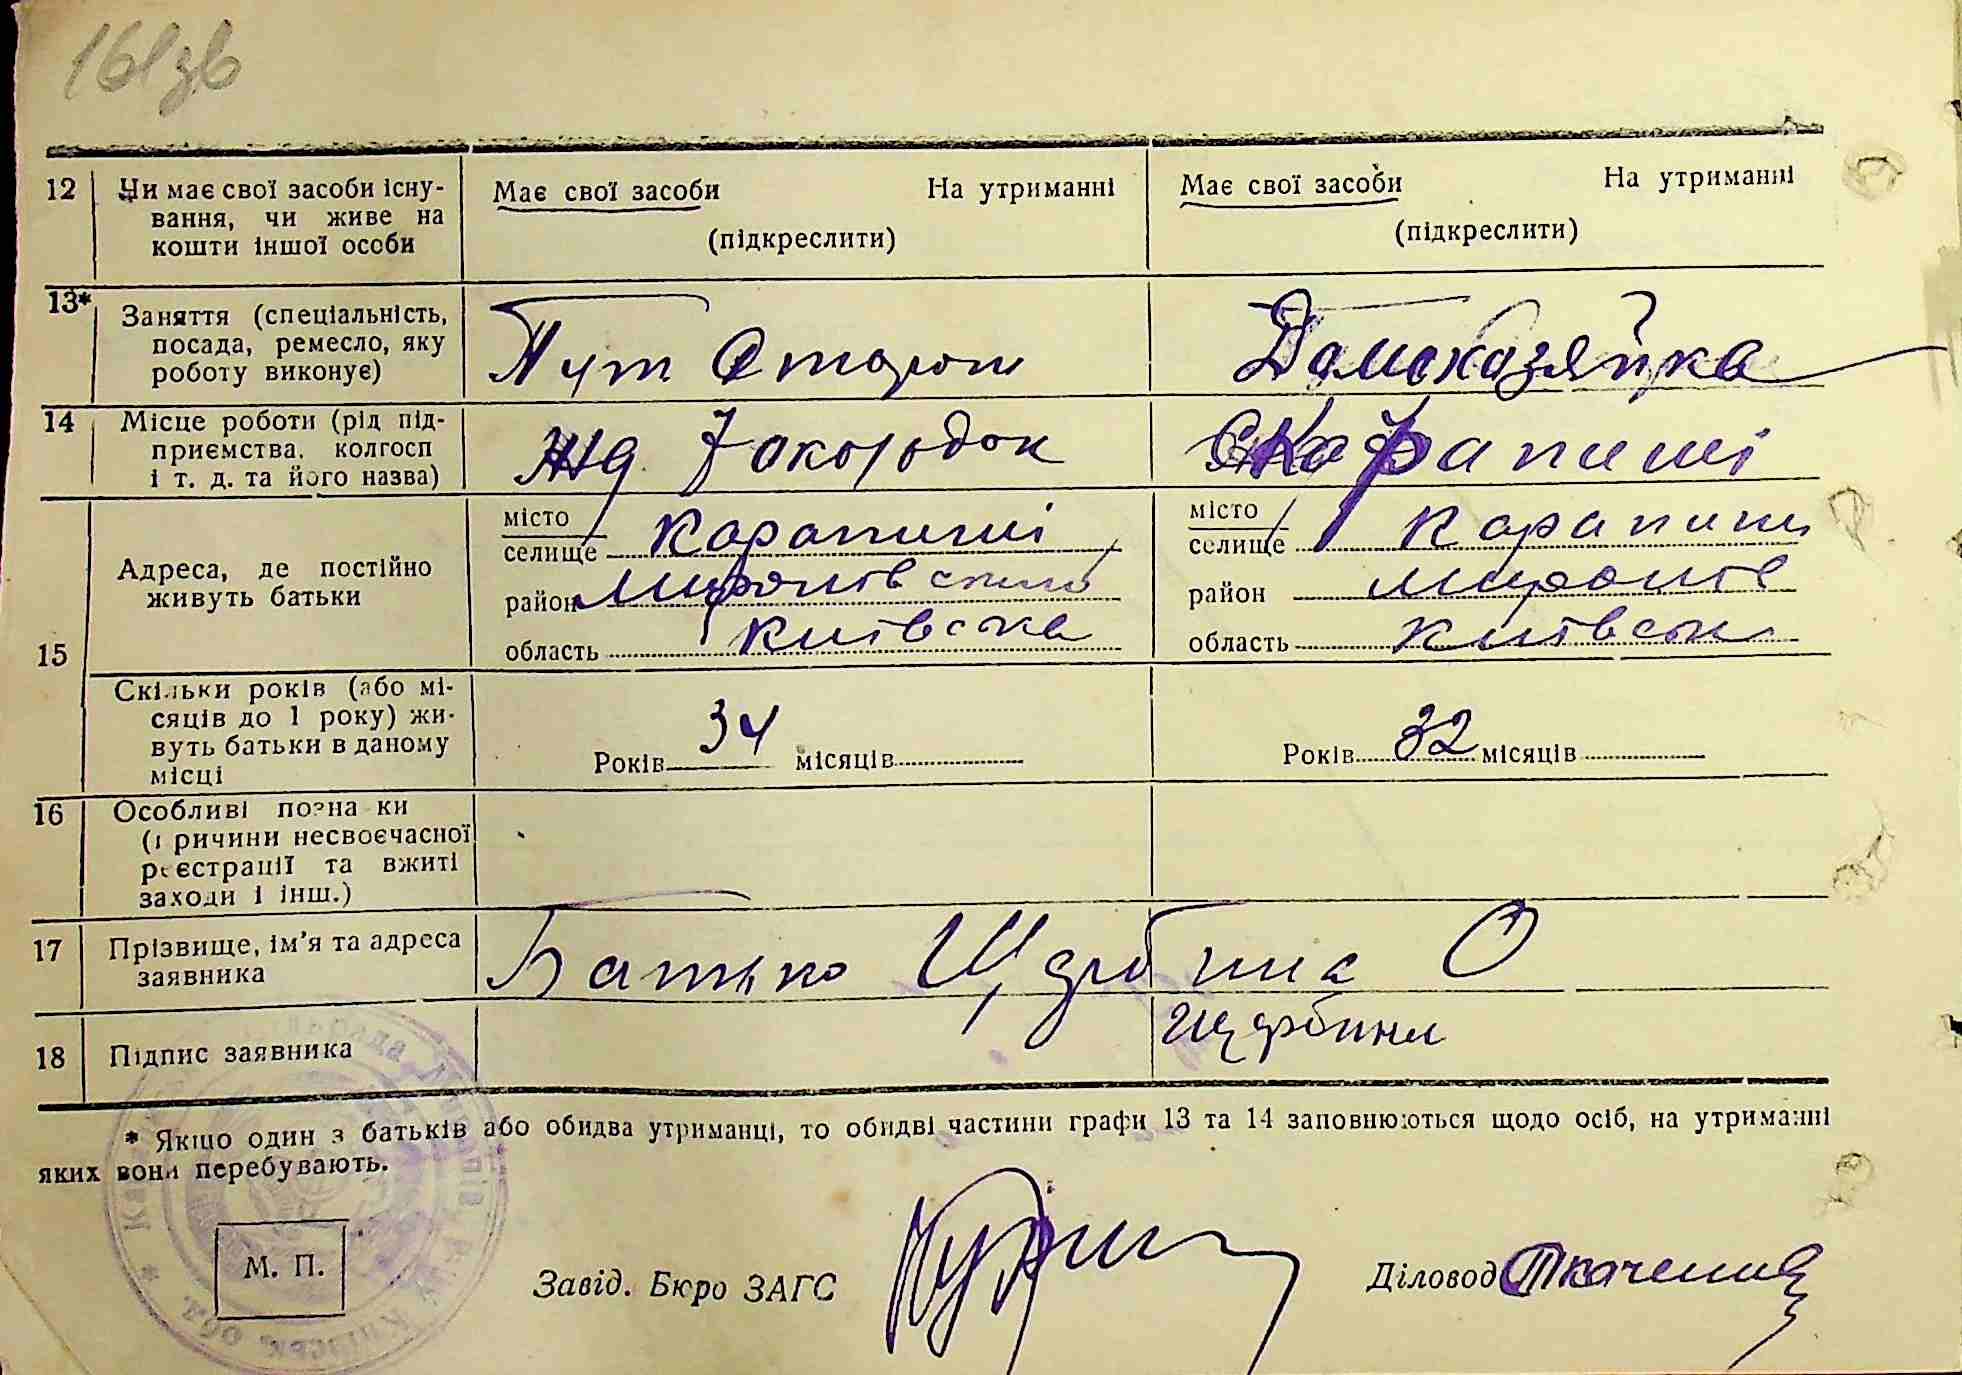 161зв
12 Чи має свої засоби існу- Має свої засоби На утриманні Має свої засоби На утриманні
вання, чи живе на
кошти іншої особи (підкреслити) (підкреслити)
13* Заняття (спеціальність,
посада, ремесло, яку
роботу виконує) Пут Сторож Домохазяйка
14 Місце роботи (рід під-
приємства, колгосп
і т. д. та його назва) жд Карапиші
15 Адреса, де постійно
живуть батьки
місто
селище Карапиші місто
селище Карапиші
район Миронівського район Миронів
область Київська область Київськ
Скільки років (або мі-
сяців до 1 року) жи-
вуть батьки в даному
місці Років 34 місяців Років 32 місяців
16 Особливі позначки
(причини несвоєчасної
реєстрації та вжиті
заходи і інш.)
17 Прізвище, ім'я та адреса
заявника Батько Щербина О
18 Підпис заявника Щербина
* Якщо один з батьків або обидва утриманці, то обидві частини графи 13 та 14 заповнюються щодо осіб, на утриманні
яких вони перебувають.
М. П. Завід. Бюро ЗАГС Діловод Ткаченко